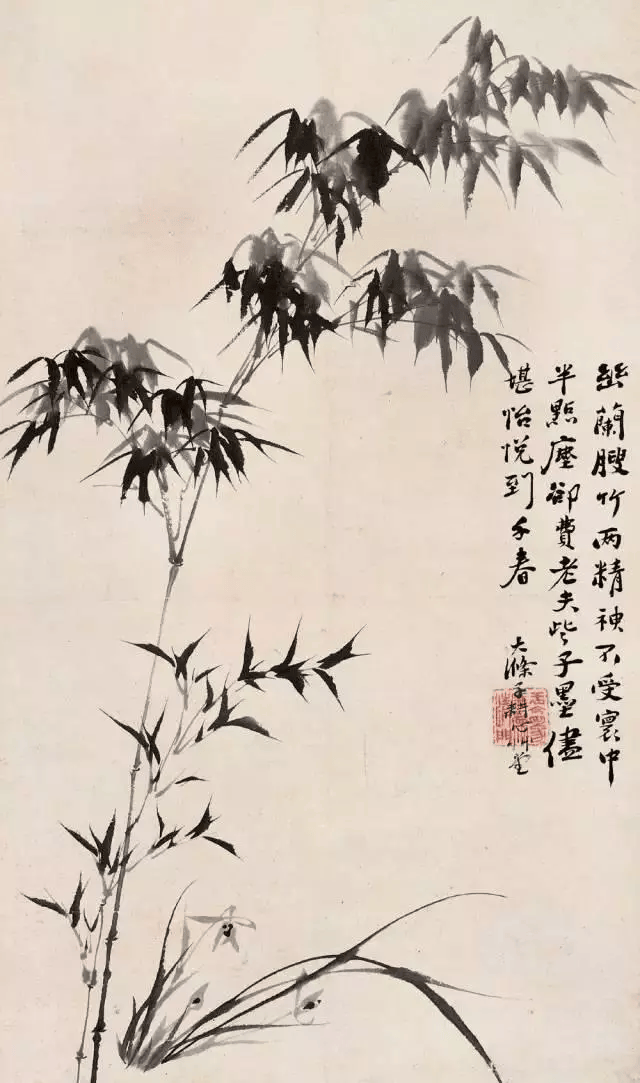 幽蘭膄竹两精神不受寰中
半點塵卻費老夫些子墨儘
堪怡悅到千春
大滌子耕心草堂